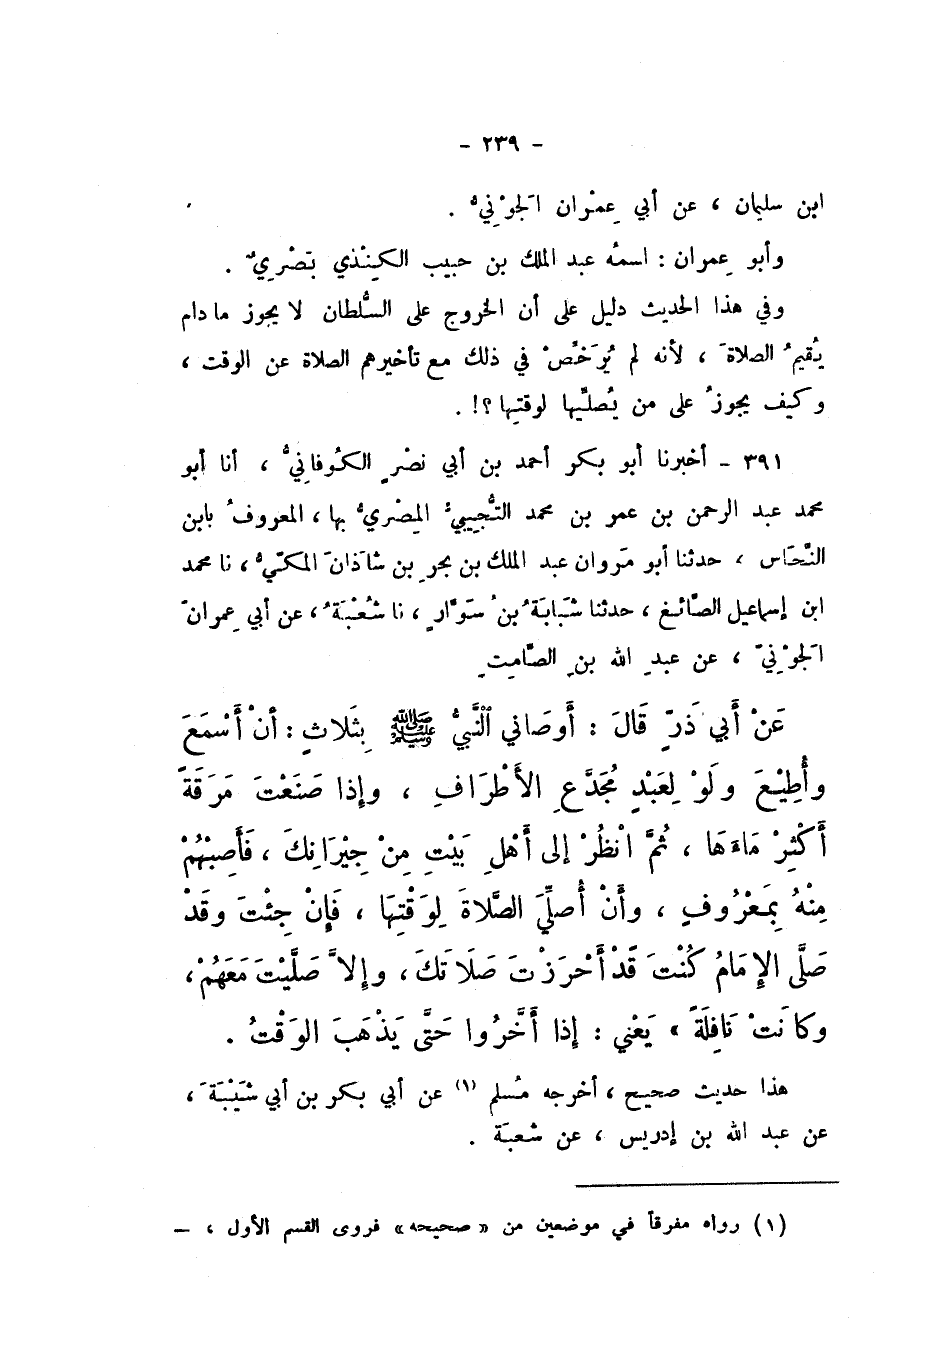 - ٢٣٩ -
ابن سليمان ، عن أبي عِمْران الجَوْنِيُّ .
وأبو عِمران : اسمُه عبد الملك بن حبيب الكِنْدي بَصْرِيٌّ .
وفي هذا الحديث دليل على أن الخروج على السُّلطان لا يجوز مادام
يُقيمُ الصلاةَ ، لأنه لم يُرَخِّصْ في ذلك مع تأخيرهم الصلاة عن الوقت ،
وكيف يجوزُ على من يُصلِّيها لوقتِها ؟! .
٣٩١ - أخبرنا أبو بكر أحمد بن أبي نصْرٍ الكُوفانِيُّ ، أنا أبو
محمد عبد الرحمن بن عمر بن محمد التُّجِيبِيُّ المِصْرِيُّ بها ، المعروفُ بابن
النَّحَاس ، حدثنا أبو مَروان عبد الملك بن بحرِ بن شاذَانَ المكّيُّ ، نا محمد
ابن إسماعيل الصَّائغ ، حدثنا شَبَابَةُ بنُ سَوَّارٍ ، نا شُعْبَةُ ، عن أبي عِمرانَ
الجَوْنِيِّ ، عن عبدِ الله بنِ الصَّامِتِ
عَنْ أَبي ذَرٍّ قَالَ : أَوصَاني ٱلنَّبيُّ ﷺ بِثَلاثٍ : أنْ أَسْمَعَ
وأُطِيْعَ ولَوْ لِعَبْدٍ مُجَدَّعِ الأَطْرَافِ ، وإذا صَنَعْتَ مَرَقَةً
أَكْثِرْ مَاءَهَا ، ثُمَّ انْظُرْ إلى أَهْلِ بَيْتٍ مِنْ جِيْرَانِكَ ، فَأَصِبْهُمْ
مِنْهُ بِمَعْرُوفٍ ، وأَنْ أُصلِّيَ الصَّلاةَ لِوَقْتِهَا ، فَإنْ جِئْتَ وقَدْ
صَلَّى الإِمَامُ كُنْتَ قَدْ أَحْرَزْتَ صَلاتَكَ ، وإلاَّ صَلَّيْتَ مَعَهُمْ ،
وكَانَتْ نَافِلَةً » يَعْني : إذا أَخَّرُوا حَتَّى يَذْهَبَ الوَقْتُ .
هذا حديث صحيح ، أخرجه مُسلم (١) عن أبي بكر بن أبي شَيْبَةَ ،
عن عبد الله بن إدريس ، عن شعبَة .
(١) رواه مفرقاً في موضعين من « صحيحه » فروى القسم الأول ، —